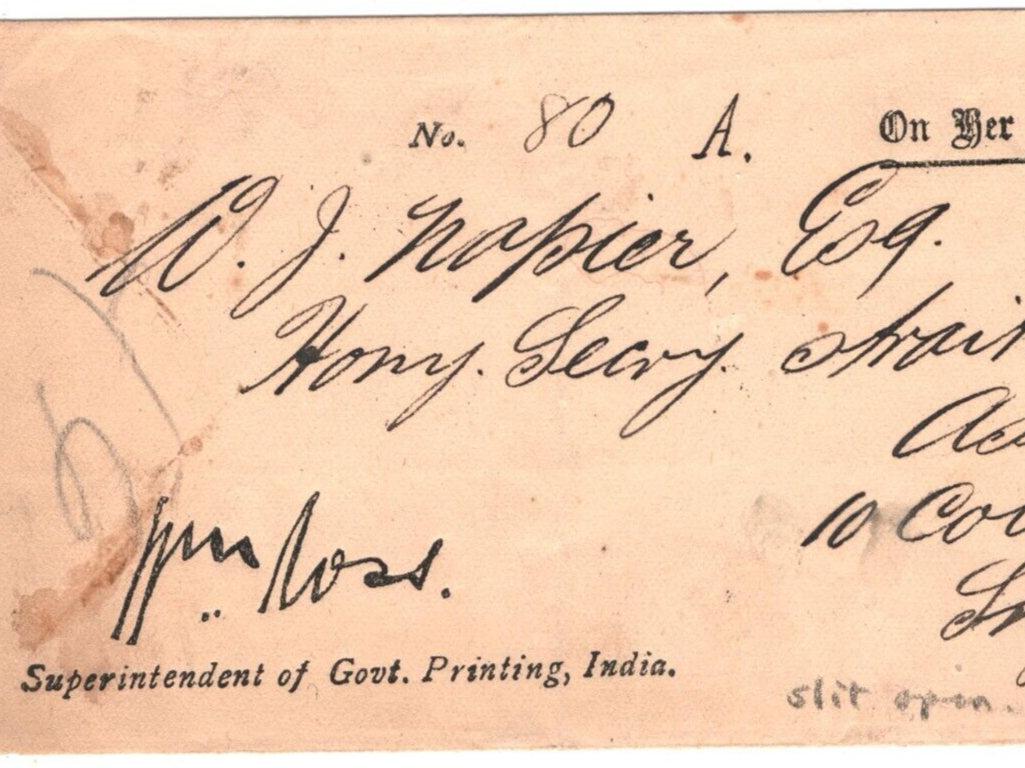 No. 80 A. On Her
W. J. Napier, Esq.
Hony. Secry. Strait
10
Wm Ross.
Superintendent of Govt. Printing, India.
slit open.